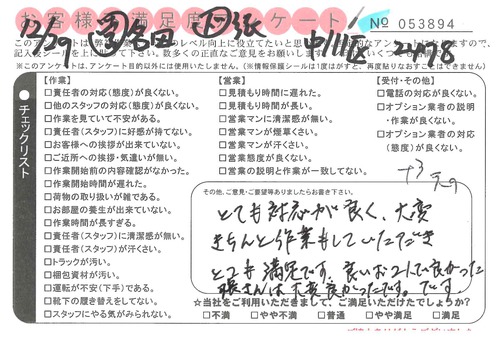 お客様満足度アンケート
№ 053894
12/29
中川区
このアンケートは
レベル向上に役立てたいと思
記入後シールを
数多くの正直なご意見をお
(※このアンケートは、アンケート目的以外には使用いたしません。(情報保護シールは1度はがすと、再度貼りなおすことはできません)
チェックリスト
【作業】
□責任者の対応(態度)が良くない。
□他のスタッフの対応(態度)が良くない。
□作業を見ていて不安がある。
□責任者(スタッフ)に好感が持てない。
□お客様への挨拶が出来ていない。
□ご近所への挨拶・気遣いが無い。
□作業開始前の内容確認がなかった。
□作業開始時間が遅れた。
□荷物の取り扱いが雑である。
□お部屋の養生が出来ていない。
□作業時間が長すぎる。
□責任者(スタッフ)に清潔感が無い。
□責任者(スタッフ)が汗くさい。
□トラックが汚い。
□梱包資材が汚い。
□運転が不安(下手)である。
□靴下の履き替えをしてない。
□スタッフにやる気がみられない。
【営業】
□見積もり時間に遅れた。
□見積もり時間が長い。
□営業マンに清潔感が無い。
□営業マンが煙草くさい。
□営業マンが汗くさい。
□営業態度が良くない。
□営業の説明と作業が一致してない。
【受付・その他】
□電話の対応が良くない。
□オプション業者の説明
・作業が良くない。
□オプション業者の対応
(態度)が良くない。
その他、ご意見・ご要望等ありましたらお書き下さい。
とても対応が良く、大変
きちんと作業もしていただき
とても満足です。良いお
は大変良かったです。です
☆当社をご利用いただきまして、ご満足いただけたでしょうか?
□不満 □やや不満 □普通 □やや満足 □満足